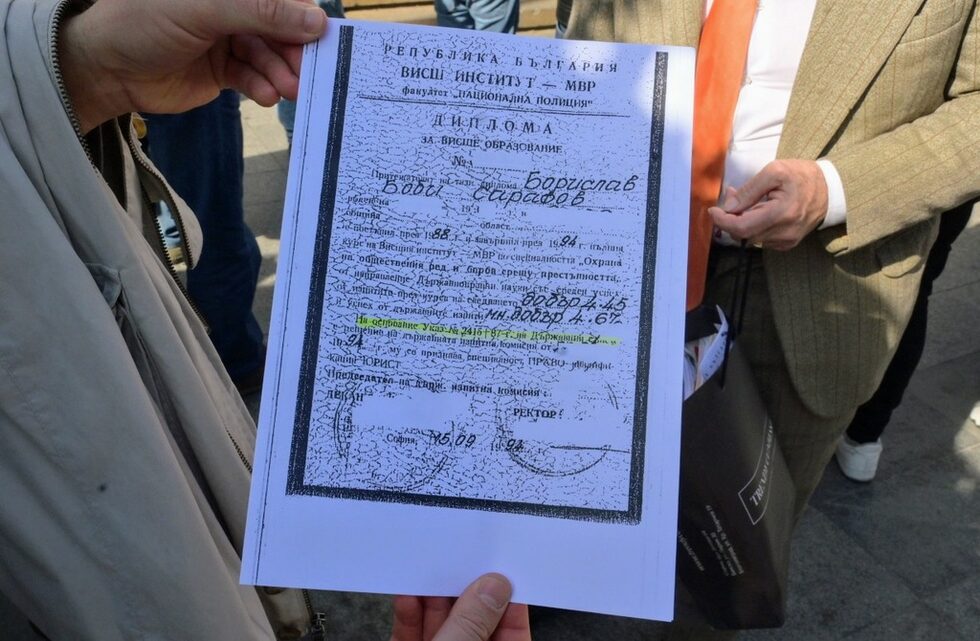 РЕПУБЛИКА БЪЛГАРИЯ
ВИСШ ИНСТИТУТ — МВР
факултет „НАЦИОНАЛНА ПОЛИЦИЯ"
ДИПЛОМА
ЗА ВИСШЕ ОБРАЗОВАНИЕ
№
Притежателят на тази диплома Борислав
Боби Сарафов
роден на 19 г. в
община област
е постъпил през 1988 г. и завършил през 1994 г. пълния
курс на Висшия институт — МВР по специалността „Охрана
на обществения ред и борба срещу престъпността,
направление Държавноправни науки със среден успех
от изпитите през курса на следването добър 4.45
и успех от държавните изпити мн. добър 4.67
На основание Указ № 2416/87 г. на Държавния
с решение на държавната изпитна комисия от
1994 му се признава специалност ПРАВО
кация ЮРИСТ
Председател на държ. изпитна комисия:
ДЕКАН РЕКТОР:
София, 15.09 1994
TEXIM BANK